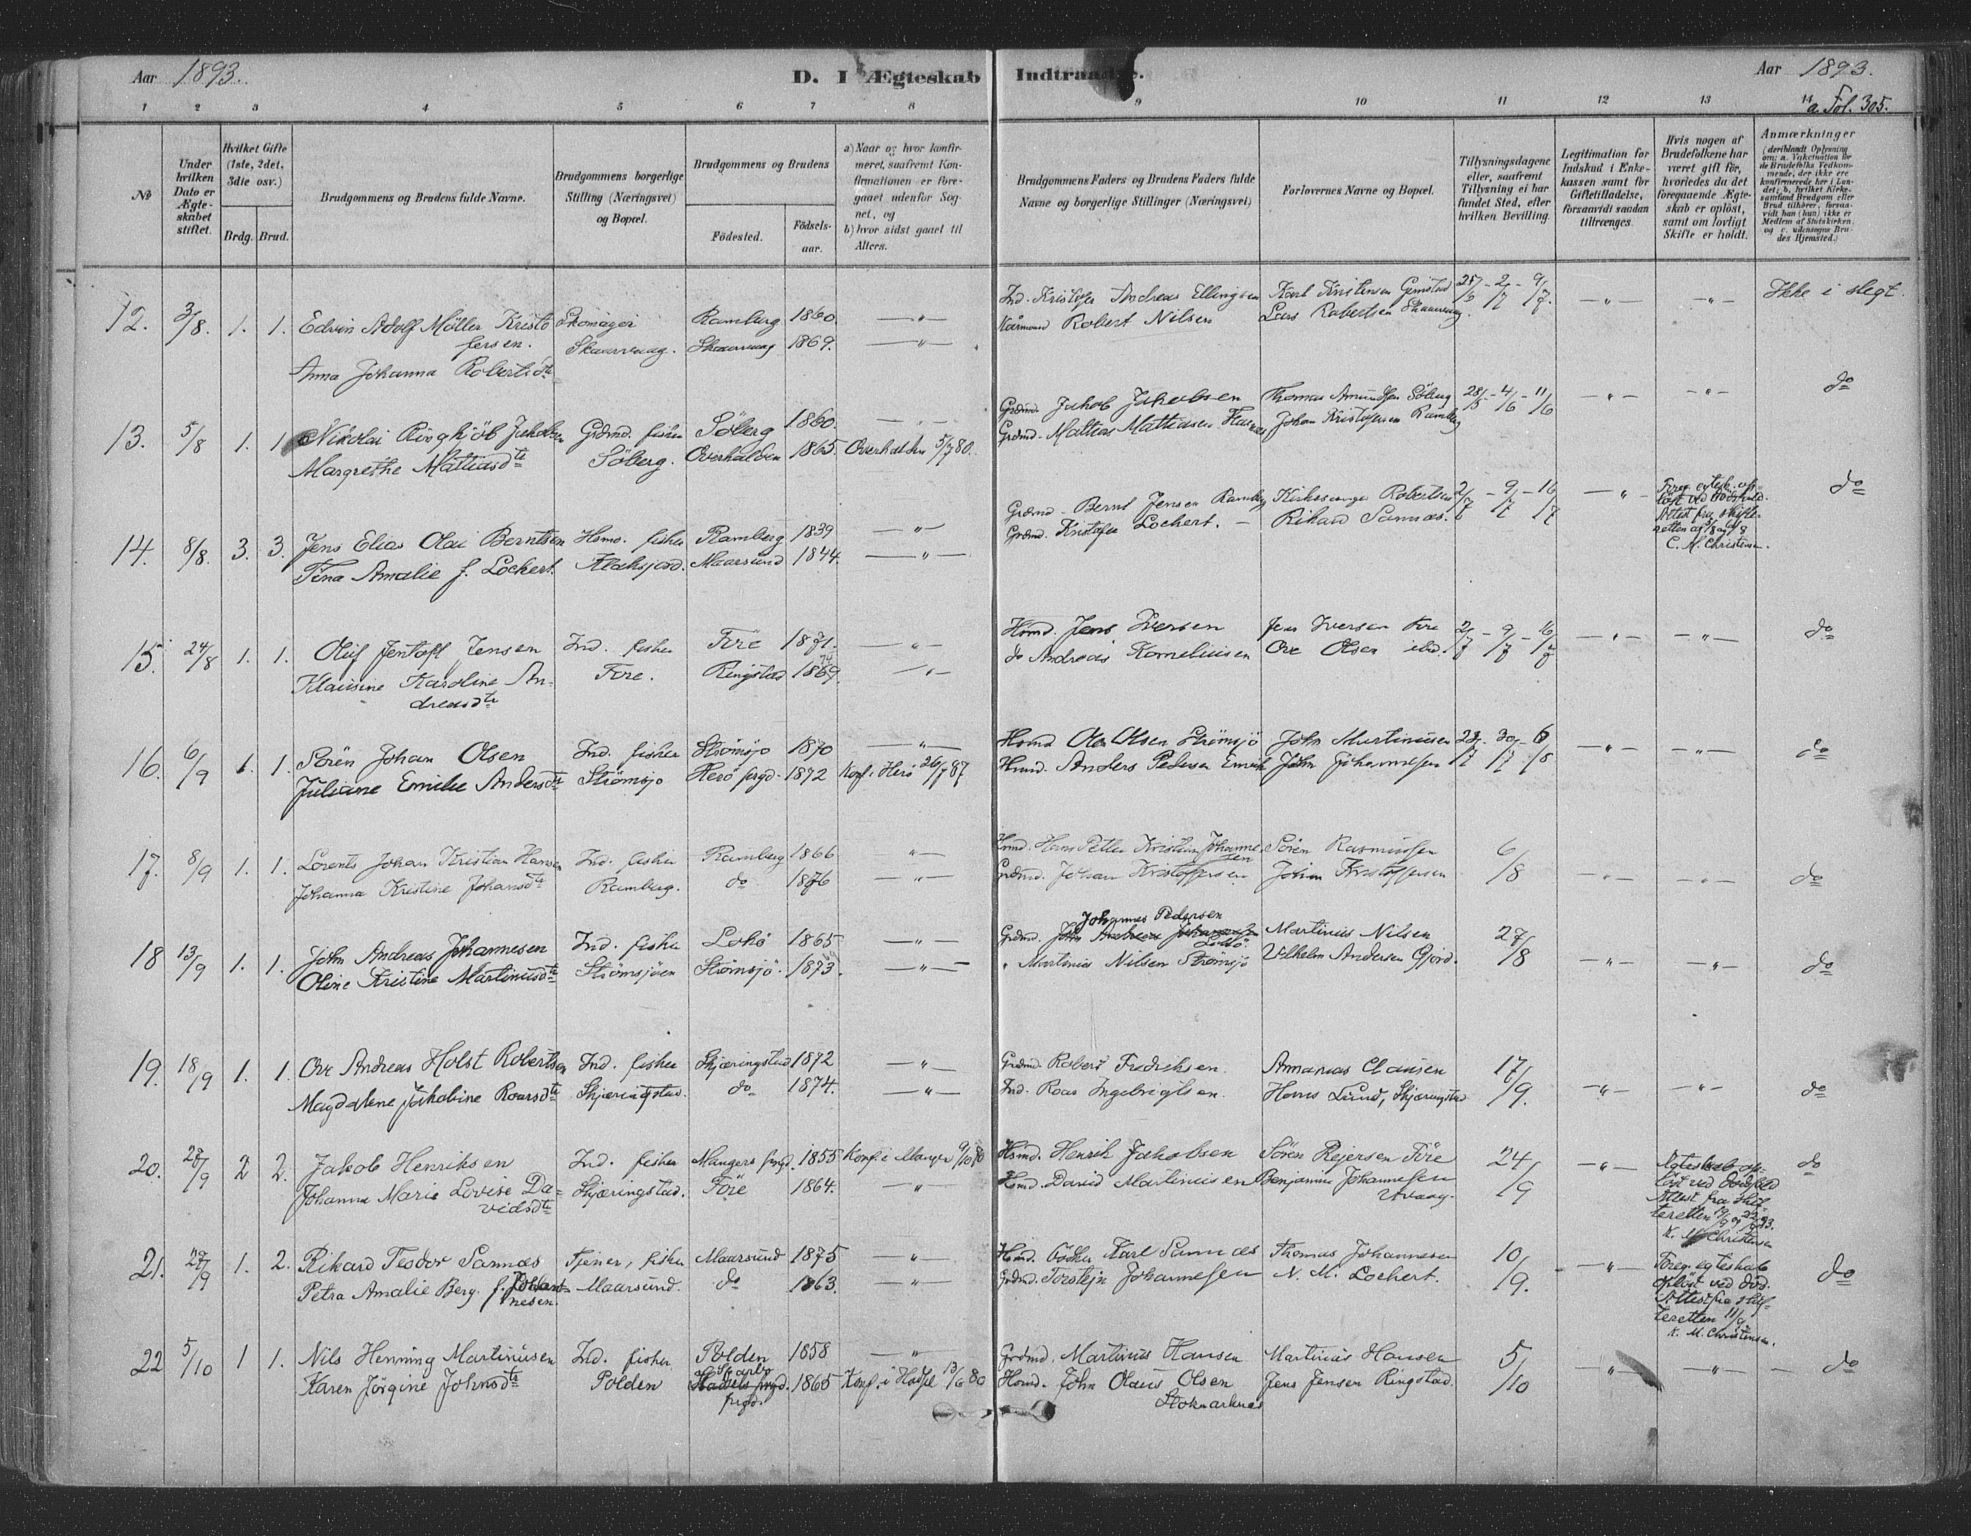 Aar 1893.
D. I Ægteskab Indtraadte.
Aar 1893.
a. Fol. 305.
1 2 3 4 5 6 7 8 9 10 11 12 13 14
No
Under hvilken Dato er Ægteskabet stiftet.
Hvilket Gifte (1ste, 2det, 3die osv.)
Brdg. Brud.
Brudgommens og Brudens fulde Navne.
Brudgommens borgerlige Stilling (Næringsvei) og Bopæl.
Brudgommens og Brudens
Fødested. Fødselsaar.
a) Naar og hvor konfirmeret, saafremt Konfirmationen er foregaaet udenfor Sognet, og
b) hvor sidst gaaet til Alters.
Brudgommens Faders og Brudens Faders fulde Navne og borgerlige Stillinger (Næringsvei)
Forlovernes Navne og Bopæl.
Tillysningsdagene eller, saafremt Tillysning ei har fundet Sted, efter hvilken Bevilling.
Legitimation for Indskud i Enkekassen samt for Giftetilladelse, forsaavidt saadan tiltrænges.
Hvis nogen af Brudefolkene har været gift før, hvorledes da det foregaaende Ægteskab er opløst, samt om lovligt Skifte er holdt.
Anmærkninger (deriblandt Oplysning om: a. Vakcination for de Brudefolks Vedkommende, der ikke ere konfirmerede her i Landet; b. hvilket Kirkesamfund Brudgom eller Brud tilhører, forsaavidt han (hun) ikke er Medlem af Statskirken, og c. udensogns Brudes Hjemsted.)
12. 3/8. 1. 1. Edvin Adolf Möller Kristofersen. Skomager Ramberg 1860. —"— Ind. Kristofer Andreas Ellingsen Karl Kristensen Grimstad 25/6 - 2/7 - 9/7. —"— —"— Ikke i slegt.
Anna Johanna Robertsdtr Skaarvaag. Skaarvaag 1869. —"— Robert Nilsen Lars Robertsen Skaarvaag
13. 5/8 1. 1. Nikolai Ringhjöb Jakobsen Grdmd. fisker Söberg 1860. —"— Grdmd. Jakob Jakobsen Thomas Amundsen Söberg 28/5 - 4/6 - 11/6 —"— —"— do
Margrethe Mattiasdtr Söberg. Overhalden 1865. Overhalden 5/7 80. Grdmd. Mattias Mattiasen Johan Kristofersen Ramberg
14. 8/8. 3. 3. Jens Elias Olai Berntsen Hsmd. fisker Ramberg 1839 —"— Grdmd. Bernt Jensen Ramberg Robertsen 2/7 - 9/7 - 16/7 —"— Foreg. egtesk. opløst ved dødsfald. Attest fra skifteretten af 7/8 og 9/8 C. M. Christensen. do
Tina Amalie f. Lochert. Maarsund 1844. —"— Grdmd. Kristofer Lochert. — Rikard Sannæs.
15. 24/8 1. 1. Oluf Jentoft Jensen Ind. fisker Före 1871. —"— Hsmd. Jens Iversen Jens Iversen Före 2/7 - 9/7 - 16/7 —"— —"— do
Klausine Karoline Andreasdtr Före. Ringstad 1869. —"— do Andreas Korneliusen Ove Olsen ibd.
16. 6/9 1. 1. Sören Johan Olsen Ind. fisker Strömsjö 1870 —"— Hsmd Ole Olsen Strömsjö John Martinusen 23/7 - 30/7 - 6/8 —"— —"— do
Juliane Emilie Andersdtr Strömsjo Herö prgd. 1872 Konf. i Herö 26/7 87 Hsmd. Anders Pedersen John Johannesen
17. 8/9 1. 1. Lorents Johan Kristian Hansen Ind. fisker Ramberg 1866 —"— Hsmd. Hans Petter Kristian Johannesen Sören Rasmussen 6/8 —"— —"— do
Johanna Kristine Johansdtr Ramberg. do 1876 —"— Grdmd. Johan Kristoffersen Johan Kristoffersen
18 13/9 1. 1. John Andreas Johannesen Ind. fisker Lokö 1865 —"— Grdmd. Johannes Pedersen Martinus Nilsen 27/8 —"— —"— do
Oline Kristine Martinusdtr Strömsjöen Strömsjö. 1873. —"— " Martinus Nilsen Strömsjö Vilhelm Andersen Gjord.
19. 18/9 1. 1. Ove Andreas Holst Robertsen Ind. fisker Skjæringstad 1872 —"— Grdmd Robert Fredriksen. Ananias Clausen 17/9. —"— —"— do
Magdalene Jakobine Roarsdtr Skjæringstad. do 1874. —"— Ind. Roar Ingebrigtsen. Hans Lund, Skjæringstad
20. 27/9 2 2. Jakob Henriksen Ind. fisker Mangers prgd. 1855 Konf. i Manger 9/10 70 Hsmd. Henrik Jakobsen Sören Rejersen Före 24/9 —"— Ægteskab opløst ved Dödsfald Attest fra skifteretten K. M. Christensen do
Johanna Marie Lovise Davidsdtr Skjæringstad. Före 1864. —"— Hsmd. David Martinusen Benjamin Johannesen Utvaag.
21. 27/9 1. 2. Rikard Teodor Sannæs Tjener, fisker Maarsund 1875 —"— Hsmd. Karl Sannæs Thomas Johannesen 10/9. —"— Foreg. egteskab opløst ved död. Attest fra skifteretten 11/9 K. M. Christensen. do
Petra Amalie Berg f. Johannesen. Maarsund. do 1863. —"— Grdmd. Torstejn Johannesen N. M. Lochert.
22 5/10 1 1. Nils Henning Martinusen Ind. fisker Polden 1858 —"— Grdmd. Martinus Hansen Martinus Hansen 5/10 —"— —"— do
Karen Jörgine Johnsdtr Polden prgd. 1865 Konf. i Hadsel 13/6 80 Hsmd. John Olaus Olsen Stokmarknes Jens Jensen Ringstad.